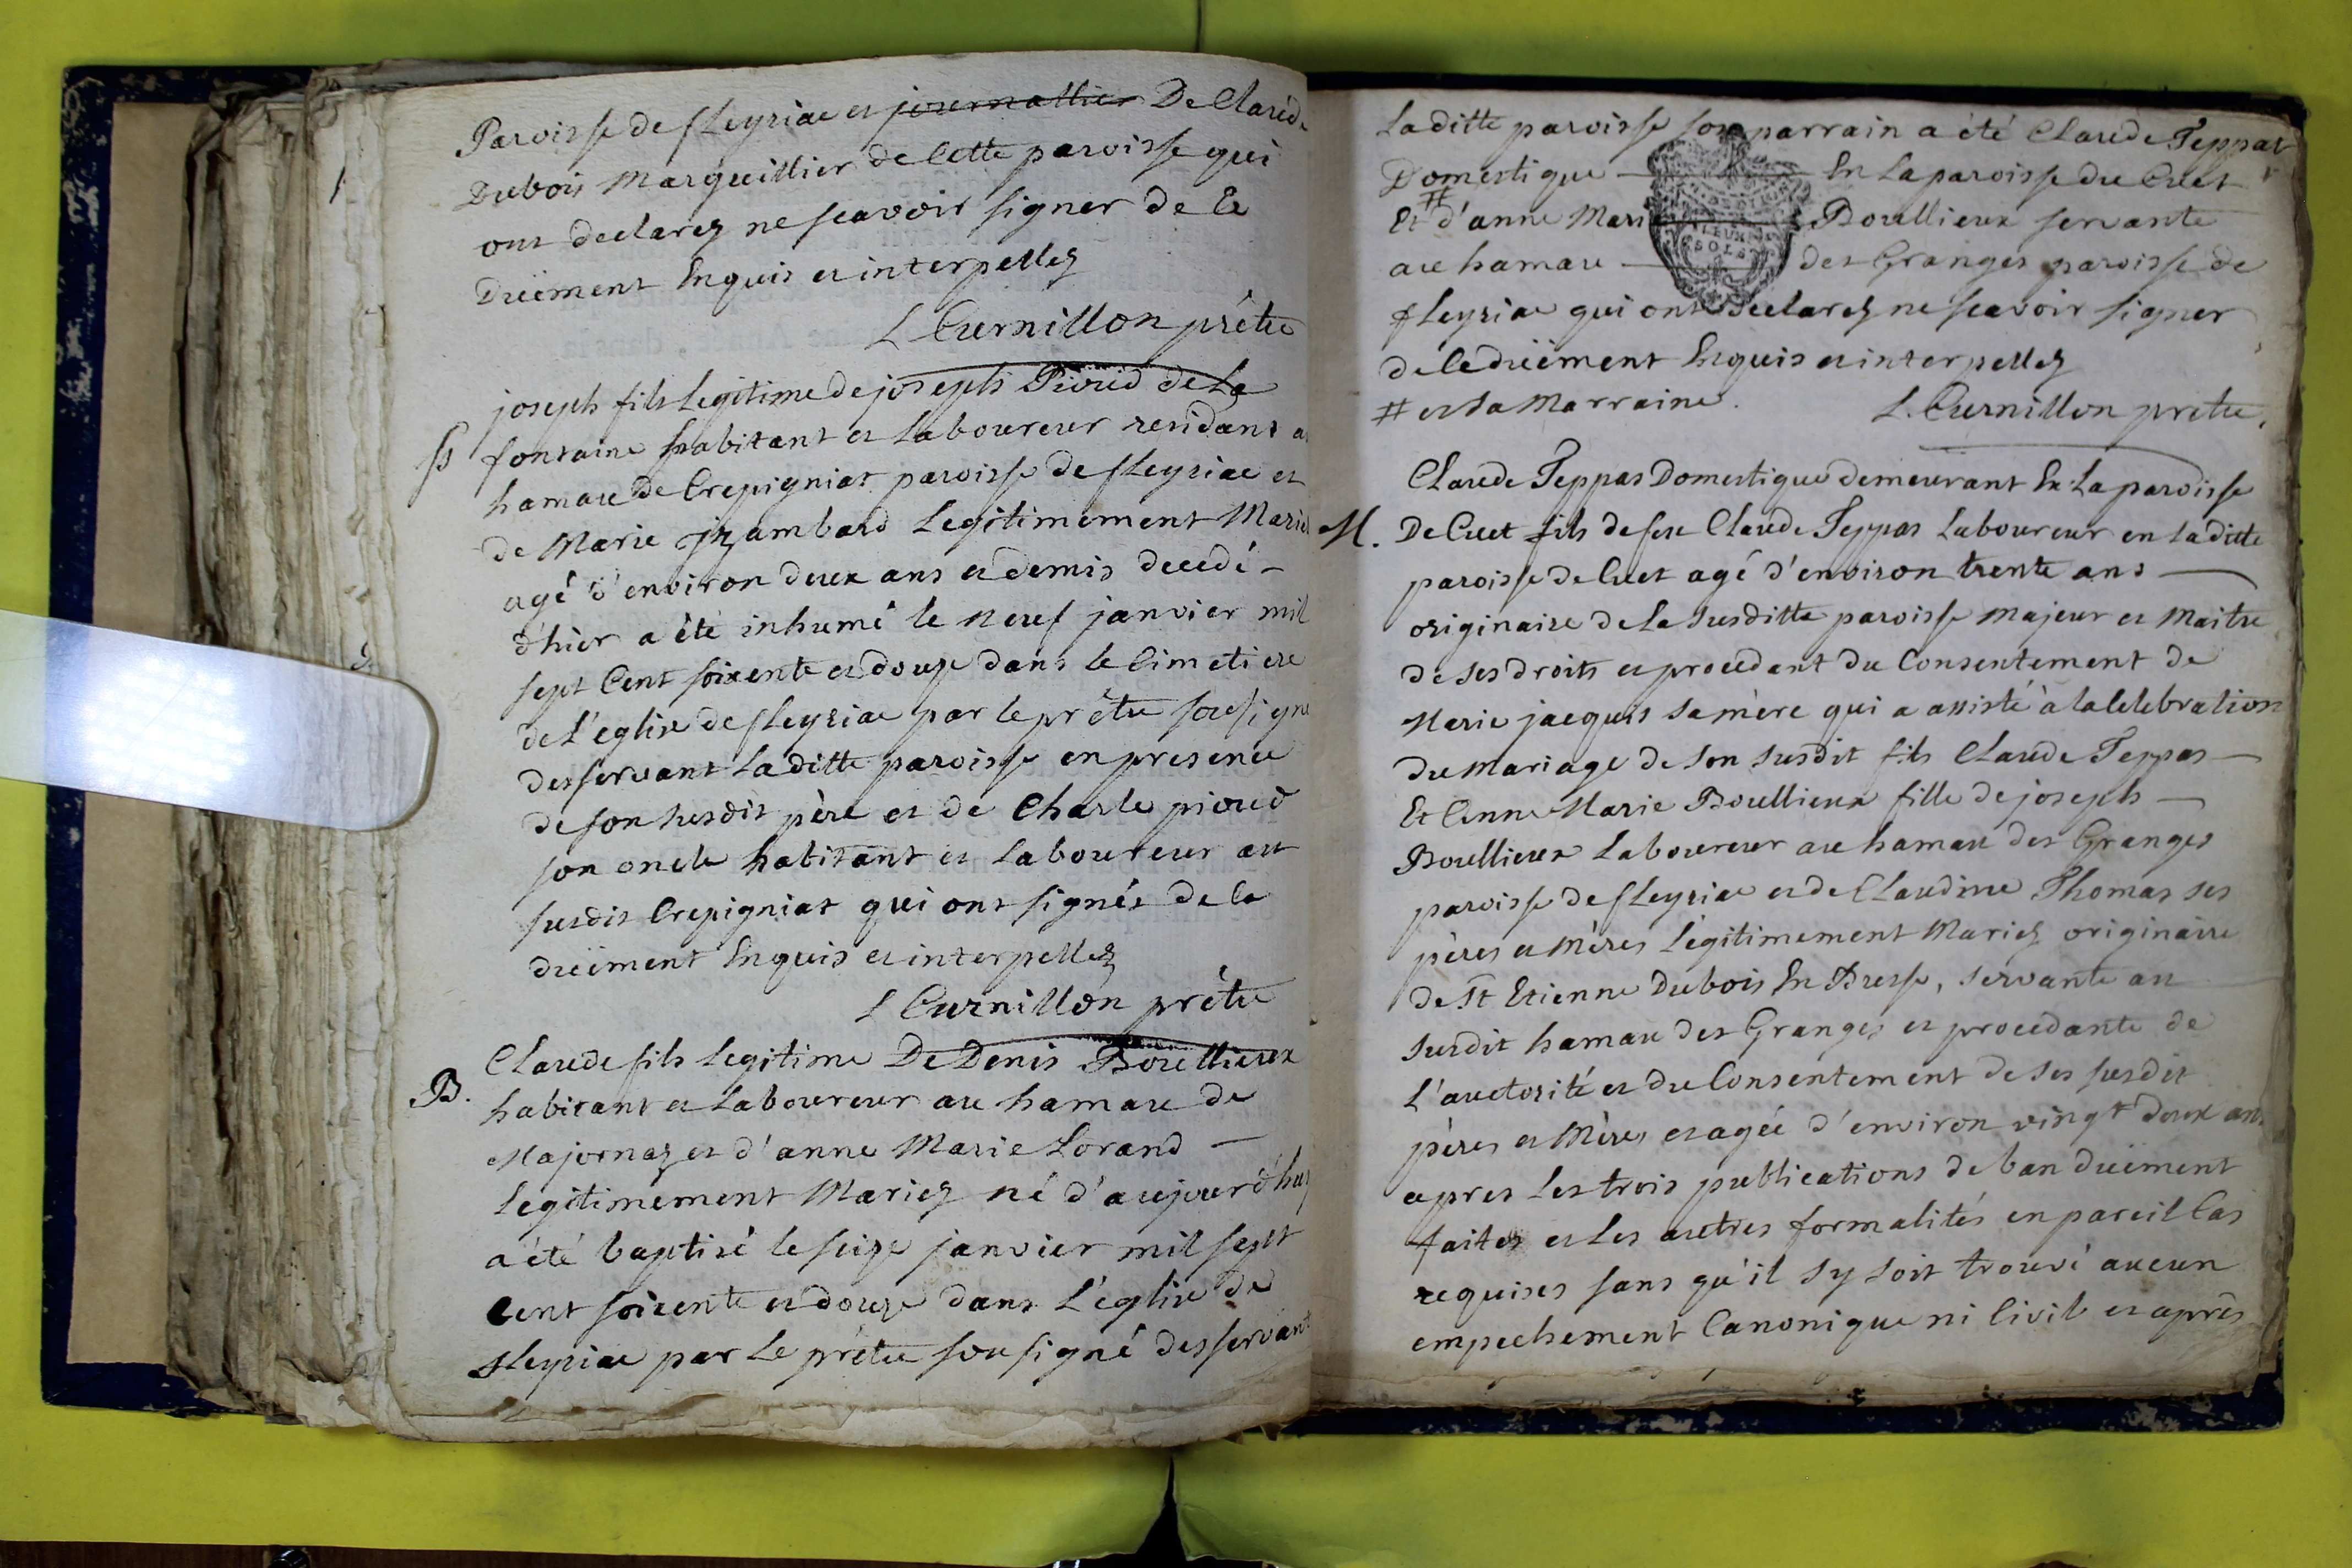 Paroisse de fleyriae et journallier De Claude
Dubois Marguillier de Cette paroisse qui
ont declarez ne scavoir signer de Ce
düement Enquis et interpellez
L Curnillon prêtre
joseph fils Legitime de joseph Pioud de La
S fontaine habitant et Laboureur residant au
hamau De Crepigniat paroisse de fleyriae et
de Marie jzambard Legitimement Mariez
agé d'environ deux ans et demis decedé
d'hier a été inhumé le neuf janvier mil
sept Cent soixente et douze dans le Cimetiere
de L'eglise de fleyriae par le prêtre sousigné
desservant La ditte paroisse en presence
de son susdit père et de Charle pioud
son oncle habitant et Laboureur au
susdit Crepigniat qui ont signés de Ce
düement Enquis et interpellez
L Curnillon prêtre
Claude fils legitime De Denis Bouellieux
B. habitant et Laboureur au hamau de
Majornaz et d'anne Marie Lorand
Legitimement Mariez né d'aujourd'huy
a été baptisé le seize janvier mil sept
Cent soixente et douze dans L'église de
fleyriae par Le prêtre sousigné desservant
La ditte paroisse son parrain a été Claude Teppat
Domestique En La paroisse du Cuet
Et # d'anne Marie Bouellieux servante
au hamau des Granges paroisse de
fleyriae qui ont declarez ne scavoir signer
de Ce düement Enquis et interpellez
# et sa Marraine. L. Curnillon prêtre,
Claude Teppas Domestique demeurant En La paroisse
M. De Cuet fils de feu Claude Teppas Laboureur en la ditte
paroisse de Cuet agé d'environ trente ans
originaire de La susditte paroisse Majeur et Maitre
de ses droits et procedant du Consentement de
Marie jacquis sa mère qui a assisté à la Celebration
du Mariage de son susdit fils Claude Teppas
Et Anne Marie Bouellieux fille de joseph
Bouellieux Laboureur au hamau des Granges
paroisse de fleyriae et de Claudine Thomas ses
pères et Mères Légitimement Mariez originaire
de St Etienne Dubois En Bresse, servante au
susdit hamau des Granges et procedante de
L'auctorité et du Consentement de ses susdit
pères et Mères et agée d'environ vingt deux ans
apres Les trois publications de ban düement
faites et Les autres formalités en pareil Cas
requises sans qu'il sy soit trouvé aucun
empechement Canonique ni Civil et après